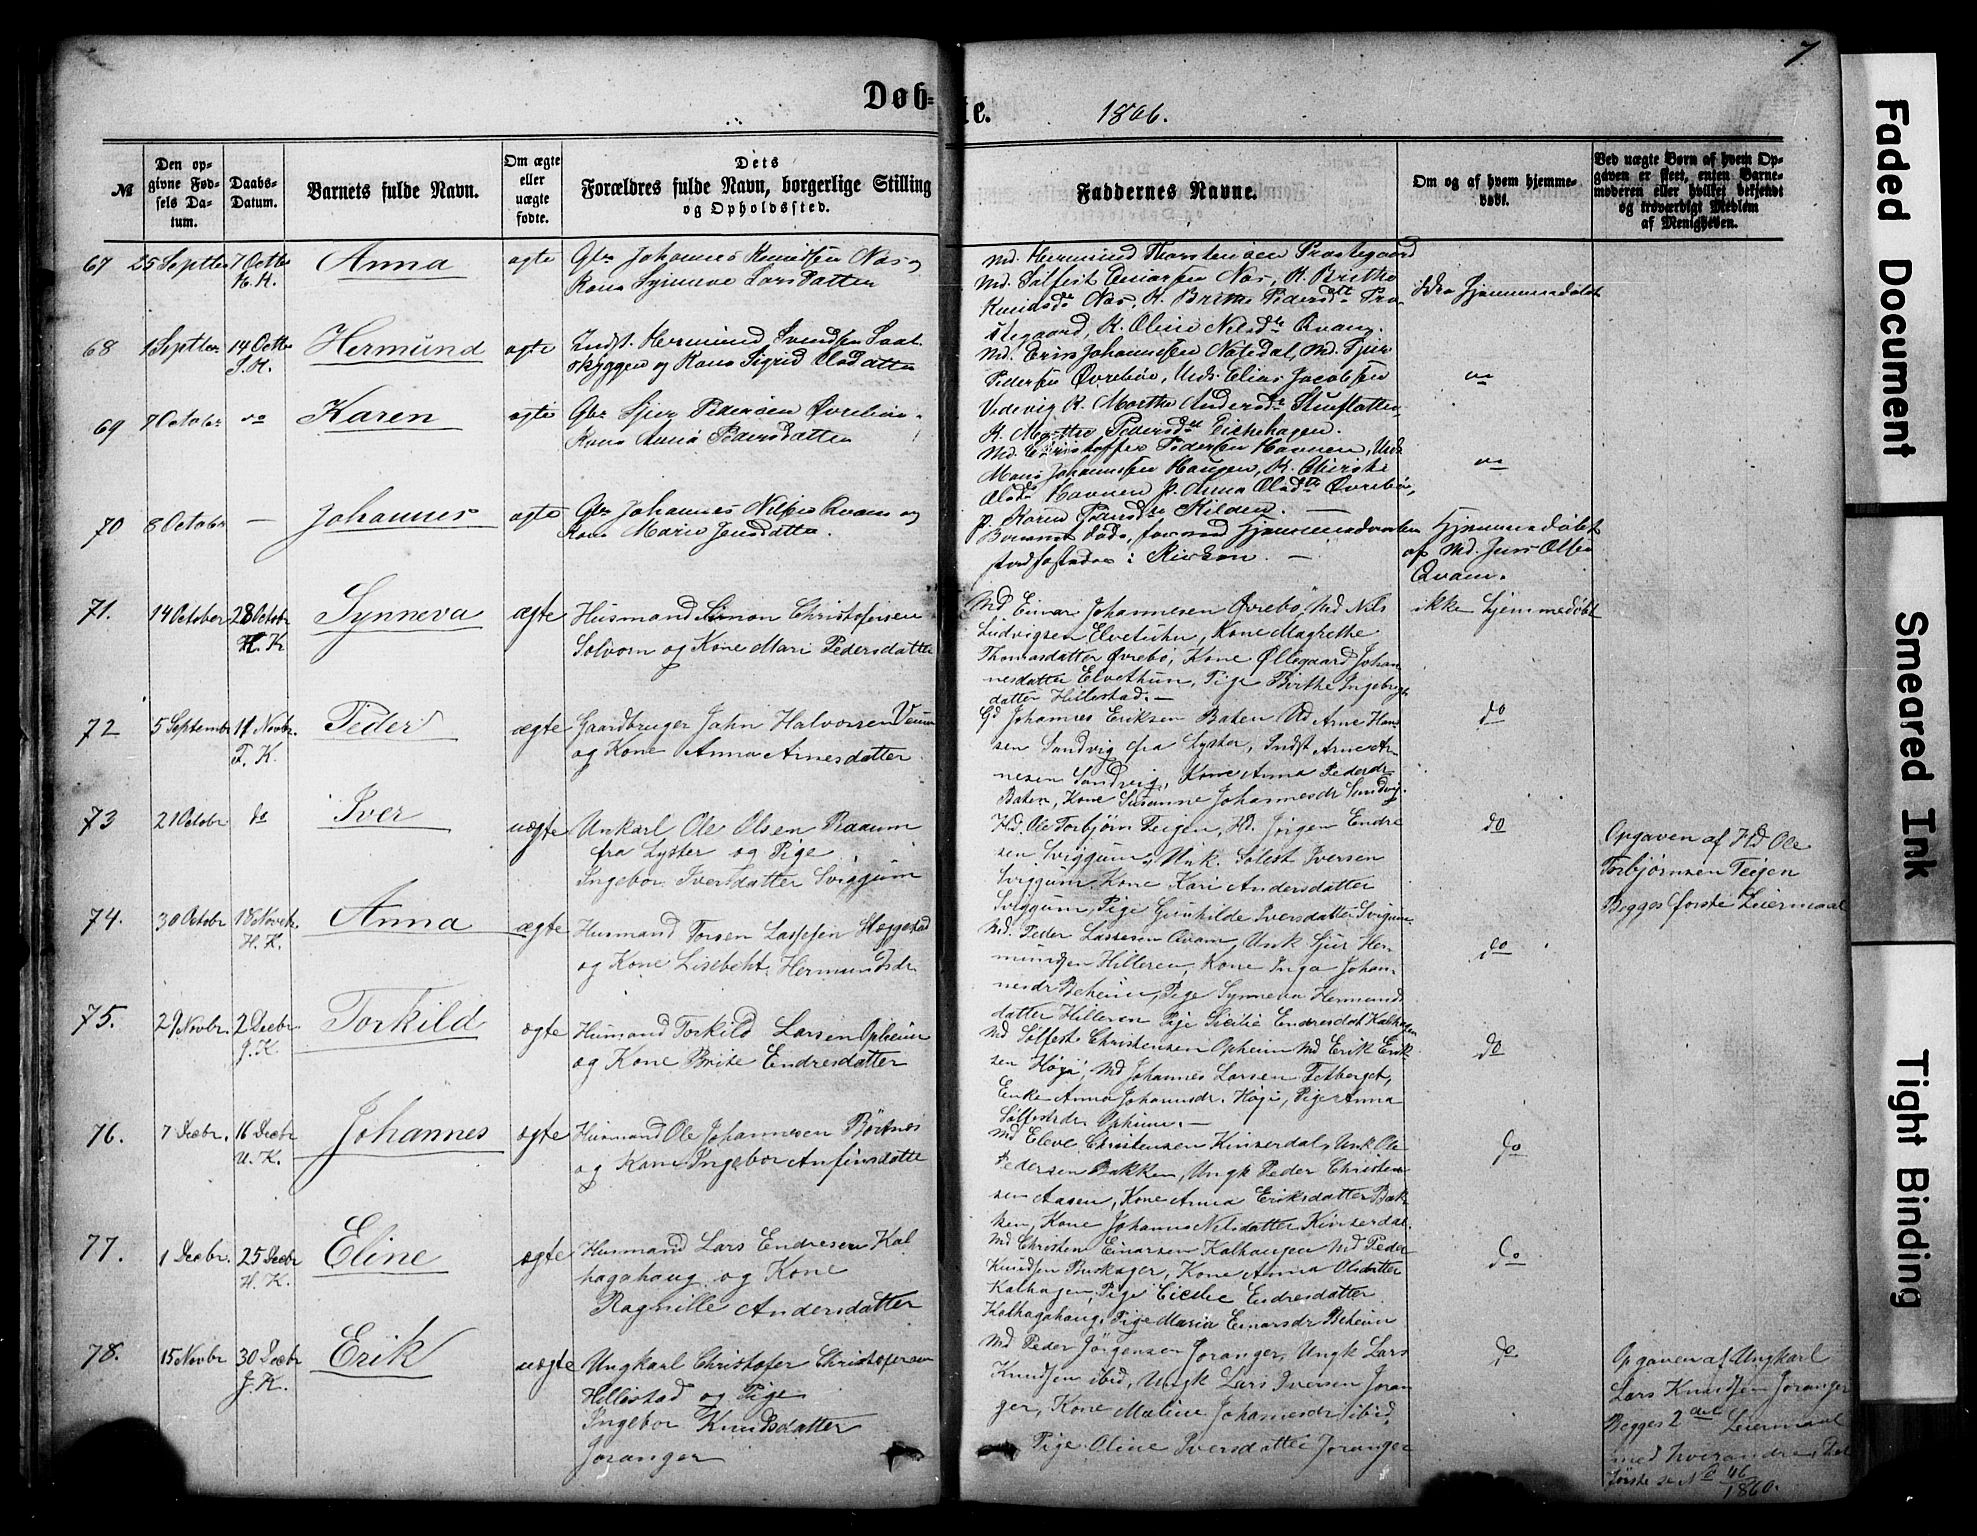 7.
Døbte. 1866.
№
Den opgivne Fødsels Datum.
Daabs-Datum.
Barnets fulde Navn.
Om ægte eller uægte fødte.
Dets Forældres fulde Navn, borgerlige Stilling og Opholdssted.
Faddernes Navne.
Om og af hvem hjemmedøbt.
Ved uægte Børn af hvem Opgaven er skeet, enten Barnemoderen eller hvilket bekjendt og troværdigt Medlem af Menigheden.
67 25 Septbr 7 Octbr Anna ægte Gbr Johannes Knudsen Næs og
H. K. Kone Synneve Larsdatter
Md. Hermund Thorstensen Præstegaard
Md. Sølfest Einarsen Næs, K. Brithe
Knudsdr Næs, K. Brithe Pedersdtt Præ-
stegaard, K. Oline Nilsdr Qvam.
ikke hjemmedøbt
68 1 Septbr 14 Octbr Hermund ægte Indst. Hermund Svendsen Saal
S. K. skyggen og Kone Sigrid Olsdatter
Md. Erik Johannessen Natedal, Md. Sjur
Pedersen Øvrebøe, Unds Elias Jacobsen
Vedevig K. Marthe Andersdr
K. Marthe Pedersdtr Eichehagen.
do
69 7 Octobr do Karen ægte Gbr Sjur Pedersen Øvrebøe
Kone Anna Pedersdatter
Md. Christoffer Pedersen Havnen, Unds
Mons Johannessen Haugen, K.
Olsdr Havnen p. Anna Olsdtr Øvrebø,
p. Karen Pedersdr Kilden.
do
70 8 Octobr — Johannes ægte Gbr Johannes Nilsen Qvam og
Kone Marie Jensdatter.
Barnet døde, førend Hjemmedaaben
stadfæstedes i Kirken. —
Hjemmedøbt
af Md. Jens Olsen
Qvam.
71. 14 October 28 Octobr Synneva ægte Husmand Simon Christofersen
H. K. Solvorn og Kone Mari Pedersdatter
Md Einar Johannesen Øvrebø, Md Nils
Ludvigsen Elvetuhn, Kone Magrethe
Thomasdatter Øvrebø, Kone Øllegaard Johan-
nesdatter Elvethun, Pige Birthe Ingebrigt-
datter Hillestad. —
ikke hjemmedøbt
72 5 Septembr 11 Novbr. Peder ægte Gaardbruger John Halvorsen Venum
F. K. og Kone Anna Arnesdatter
Gd Johannes Eriksen Baten Md Arne Han-
sen Sandvig fra Lyster, Indst Arne Ar-
nesen Sandvig, Kone Anna Pedersdr
Baten, Kone Susanne Johannesdr Sandvig.
do
73 21 Octobr do Iver uægte Unkarl Ole Olsen Raaum
fra Lyster og Pige
Ingebor Iversdatter Sviggum
Hd. Ole Torbjørn Teigen, Hd. Jørgen Endre
sen Sviggum, Unk. Sølfest Iversen
Sviggum, Kone Kari Andersdatter
Sviggum, Pige Gunhilde Iversdatter Sviggum
do
Opgaven af Hd Ole
Torbjørnsen Teigen
Begges første Leiermaal
74. 30 Octobr 18 Novebr. Anna ægte Husmand Torsen Lassesen Heggestad
H. K. og Kone Lisebeht Hermundsdr
Md. Peder Lassesen Qvam, Unk Sjur Her-
mundsen Hilleren, Kone Inga Johan-
nesdr Beheim, Pige Synneva Hermunds
datter Hilleren Pige Sicilie Endresdatt Kalhagen
do
75. 29 Novbr. 2 Decbr. Torkild ægte Husmand Torkild Larsen Opheim
J. K. og Kone Brite Endresdatter
Md Sølfest Christensen Opheim Md Erik Erik-
sen Høgi, Md Johannes Larsen Fetberget,
Enke Anna Johannsdr. Høgi, Pige Anna
Sølfestsdr Opheim. —
do
76. 7 Decbr. 16 Decbr Johannes ægte Husmand Ole Johannesen Børtnes
U. K. og Kone Ingebor Anfinsdatte
Md Eleve Christensen Kinserdal, Unk Ole
Pedersen Bakken, Ungk Peder Christen
sen Aasen, Kone Anna Eriksdatter Bak-
ken, Kone Johanne Nilsdatter Kinserdal.
do
77. 1 Decbr. 25 Decbr Eline ægte Husmand Lars Endresen Kal
H. K. hagahaug og Kone
Ragnille Andersdatter
Md Christen Einarsen Kalhagen Md Peder
Knudsen Buskager, Kone Anna Olsdatter
Kalhagen, Pige Cicilie Endresdatter
Kalhagahaug, Pige Maria Einarsdr Beheim
do
78. 15 Novbr 30 Decbr Erik uægte Ungkarl Christofer Christofersen
J. K. Hillestad og Pige
Ingebor Knudsdatter
Joranger
Md Peder Jørgensen Joranger, Ungk Lars
Knudsen ibid, Ungk Lars Iversen Joran-
ger, Kone Maline Johannesdr ibid,
Pige Oline Iversdatter Joranger
do
Opgaven af Ungkarl
Lars Knudsen Joranger
Begges 2det Leiermaal
med hverandre, det
første se No 46/1860.
Faded Document
Smeared Ink
Tight Binding